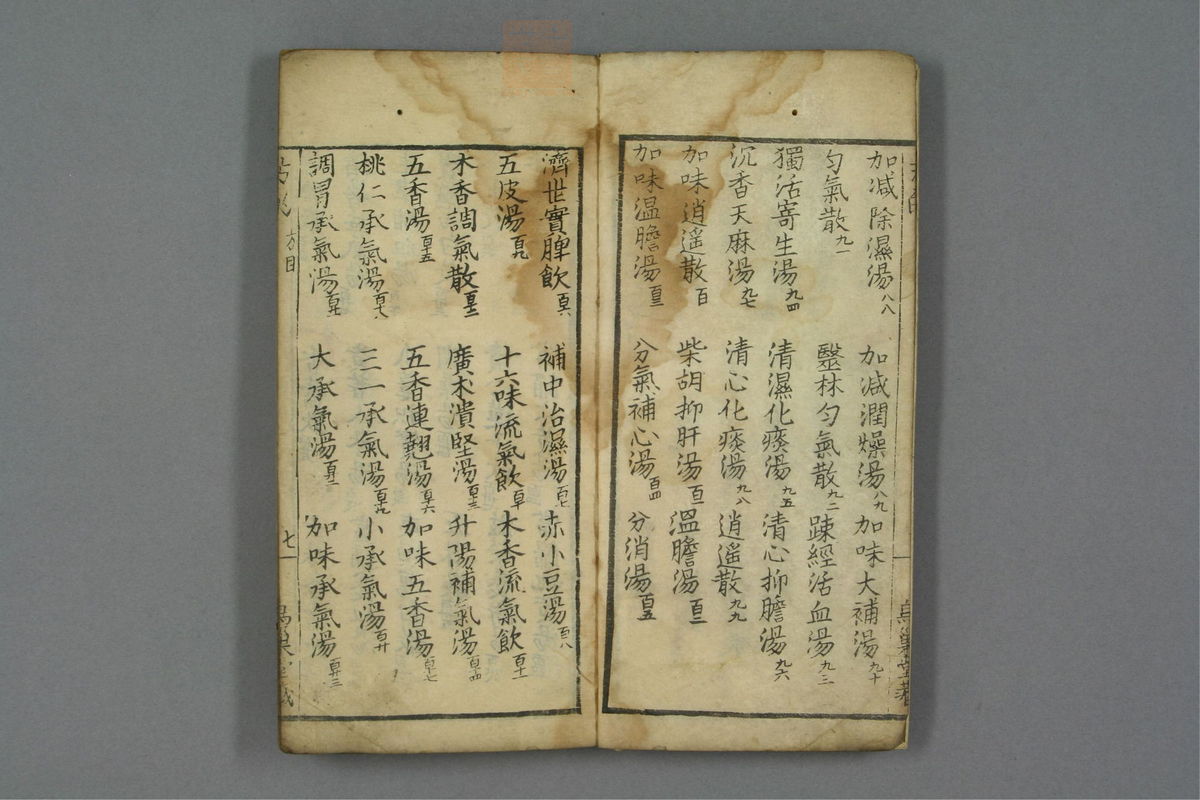 加減除濕湯八八 加減潤燥湯八九 加味大補湯九十
勻氣散九一 毉林勻氣散九二 踈經活血湯九三
獨活寄生湯九四 清濕化痰湯九五 清心抑膽湯九六
沉香天麻湯九七 清心化痰湯九八 逍遥散九九
加味逍遥散百 柴胡抑肝湯百一 温膽湯百二
加味温膽湯百三 分氣補心湯百四 分消湯百五
濟世實脾飲百六 補中治濕湯百七 赤小豆湯百八
五皮湯百九 十六味流氣飲百十 木香流氣飲百十一
木香調氣散百十二 廣木潰堅湯百十三 升陽補氣湯百十四
五香湯百十五 五香連翹湯百十六 加味五香湯百十七
桃仁承氣湯百十八 三一承氣湯百十九 小承氣湯百廿
調胃承氣湯百廿一 大承氣湯百廿二 加味承氣湯百廿三
方目
七